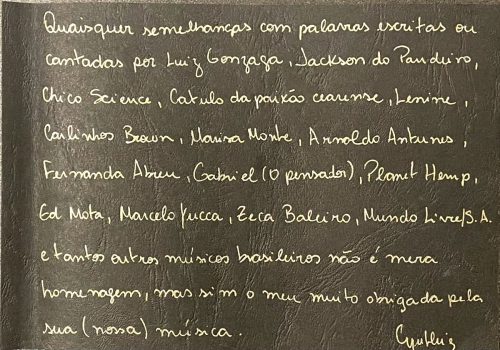 Quaisquer semelhanças com palavras escritas ou
cantadas por Luiz Gonzaga, Jackson do Pandeiro,
Chico Science, Catulo da paixão cearense, Lenine,
Carlinhos Brown, Marisa Monte, Arnaldo Antunes,
Fernanda Abreu, Gabriel (O pensador), Planet Hemp,
Ed Mota, Marcelo Yucca, Zeca Baleiro, Mundo Livre/S.A.
e tantos outros músicos brasileiros não é mera
homenagem, mas sim o meu muito obrigada pela
sua (nossa) música.